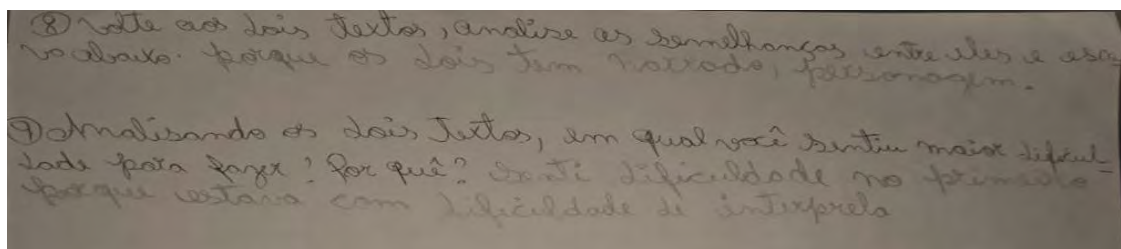 ⑧ volte aos dois textos, analise as semelhanças entre eles e escre
va abaixo. porque os dois tem narrado, personagem.
⑨ Analisando os dois textos, em qual você sentiu maior dificul-
dade para fazer? Por quê? senti dificuldade no primeiro
porque estava com dificuldade de interpreta